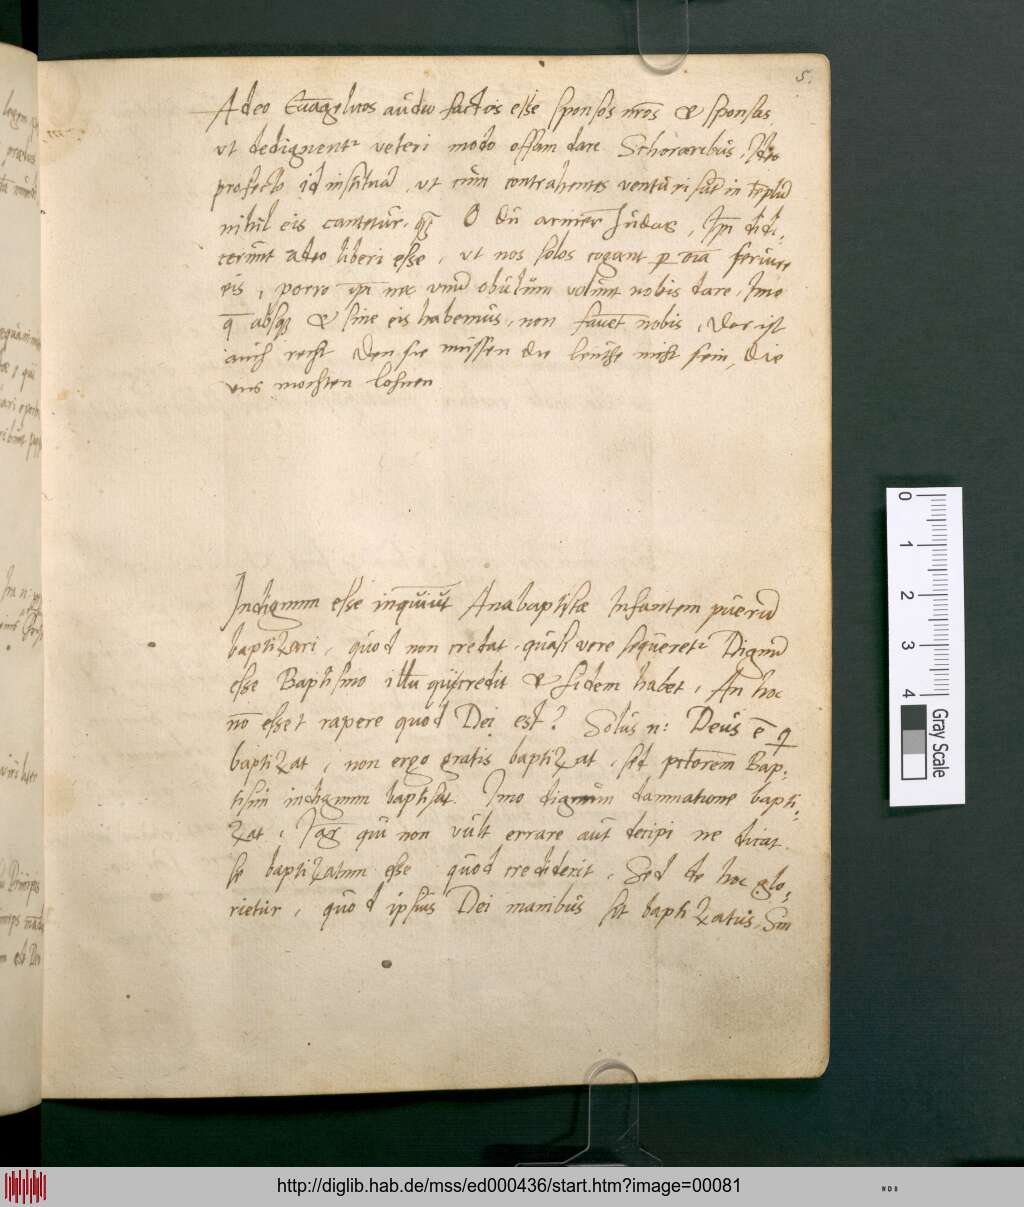 5.
Adeo Eua̅gelicos audio factos esse sponsos nr̅os & sponsas
vt dedignent̉ veteri modo offam dare Scholaribus,
profecto id instituā, vt cum contrahentes venturi su̅t in templū
nihil eis cantetur. O
nos solos cogant p oīa seruire
eis, porro ip̅i nec vnū obulum volunt nobis dare, Imo
q̅ absq; & sine eis habemus, non fauēt nobis, Der ist
auch recht Den sie mussen die leuthe nicht sein, die
vns mochten lohnen
Indignum esse inquiu̅t Anabaptistæ Infantem puerū
baptizari, quod non credat, quasi vere sequeret̉ Dignū
esse Baptismo illū qui credit & fidem habet, An hoc
nō esset rapere quod Dei est? Solus n: Deus ē q
baptizat, non ergo gratis baptizat, sed pctorem Bap-
tismi indignum baptisat. Imo dignum damnatione bapti-
zat, qui non vult errare aut decipi ne dicat
se baptizatum esse quod crediderit, Sed de hoc glo-
rietur, quod ipsius Dei manibus sit baptizatus, Sin
0 1 2 3 4
Gray Scale
http://diglib.hab.de/mss/ed000436/start.htm?image=00081